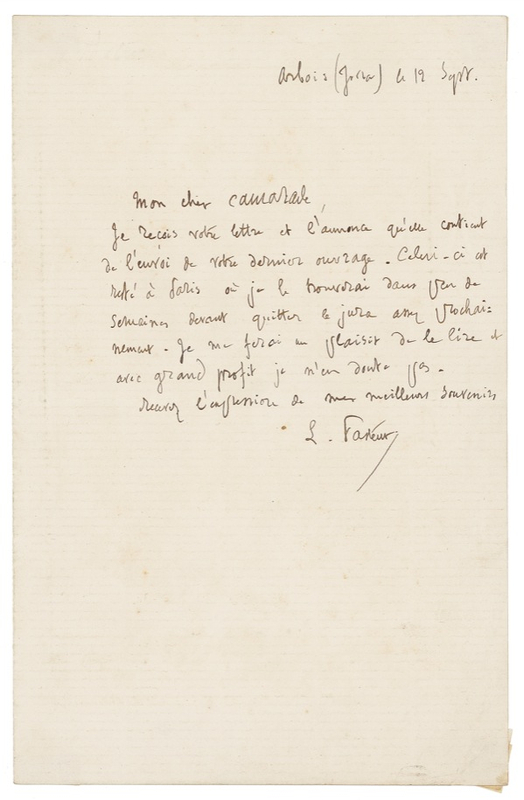 Arbois (Jura) le 12 Sept.
Mon cher camarade,
Je reçois votre lettre et l'annonce qu'elle contient
de l'envoi de votre dernier ouvrage. Celui-ci est
resté à Paris où je le trouverai dans peu de
semaines devant quitter le jura assez prochai=
nement. Je me ferai un plaisir de le lire et
avec grand profit je n'en doute pas.
Recevez l'expression de mes meilleurs souvenirs
L. Pasteur